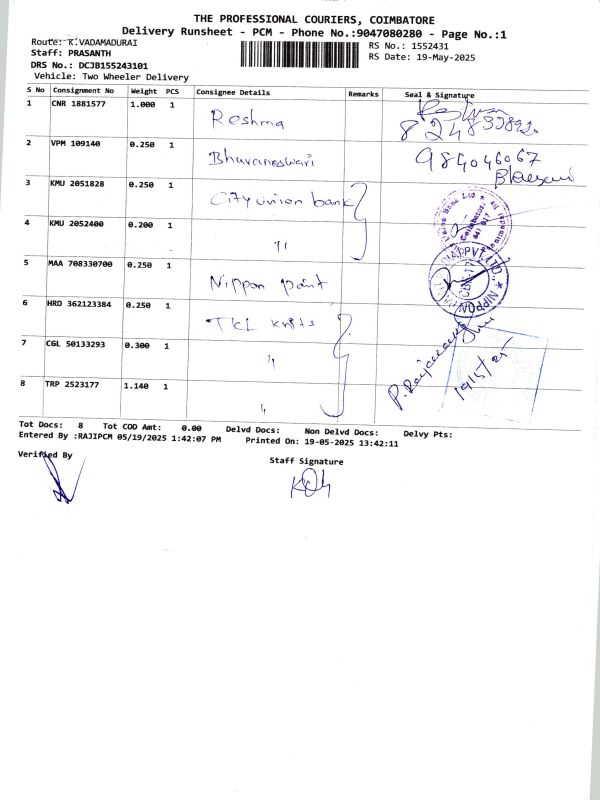 THE PROFESSIONAL COURIERS, COIMBATORE
Delivery Runsheet - PCM - Phone No.:9047080280 - Page No.:1
Route: K.VADAMADURAI
Staff: PRASANTH
DRS No.: DCJB155243101
Vehicle: Two Wheeler Delivery
RS No.: 1552431
RS Date: 19-May-2025
S No Consignment No Weight PCS Consignee Details Remarks Seal & Signature
1 CNR 1881577 1.000 1 Reshma
2 VPM 109140 0.250 1 Bhuvaneswari 984046067
3 KMU 2051828 0.250 1 City union bank
4 KMU 2052400 0.200 1 "
5 MAA 708330700 0.250 1 Nippon paint
6 HRD 362123384 0.250 1 TKL knits
7 CGL 50133293 0.300 1 " 19/5/25
8 TRP 2523177 1.140 1 "
Tot Docs: 8 Tot COD Amt: 0.00 Delvd Docs: Non Delvd Docs: Delvy Pts:
Entered By :RAJIPCM 05/19/2025 1:42:07 PM Printed On: 19-05-2025 13:42:11
Verified By
Staff Signature